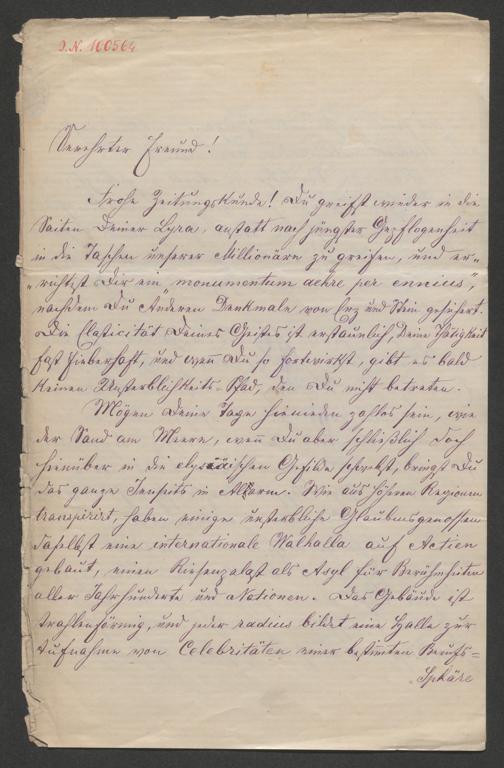 J.N. 100564
Verehrter Freund!
Frohe Zeitungskunde! Du greifst wieder in die
Saiten Deiner Lyra, anstatt nach jüngster Gepflogenheit
in die Taschen unserer Millionäre zu greifen, und er-
richtest Dir ein „monumentum aehre per ennius",
nachdem Du Anderen Denkmale von Erz und Stein gesichert.
Die Elasticität Deines Geistes ist erstaunlich, Deine Thätigkeit
fast fieberhaft, und wenn Du so fortwirkst, gibt es bald
keinen Unsterblichkeits-Pfad, den Du nicht betreten.
Mögen Deine Tage hienieden zahllos sein, wie
der Sand am Meere, wenn Du aber schließlich doch
hinüber in die elysäischen Gefilde schwebst, bringst Du
das ganze Jenseits in Allarm. Wie aus höheren Regionen
transpirirt, haben einige unsterbliche Glaubensgenossen
daselbst eine internationale Walhalla auf Actien
gebaut, einen Riesenpalast als Asyl für Berühmtheiten
aller Jahrhunderte und Nationen. Das Gebäude ist
strahlenförmig, und jeder radius bildet eine Halle zur
Aufnahme von Celebritäten einer bestimten Berufs-
Sphäre